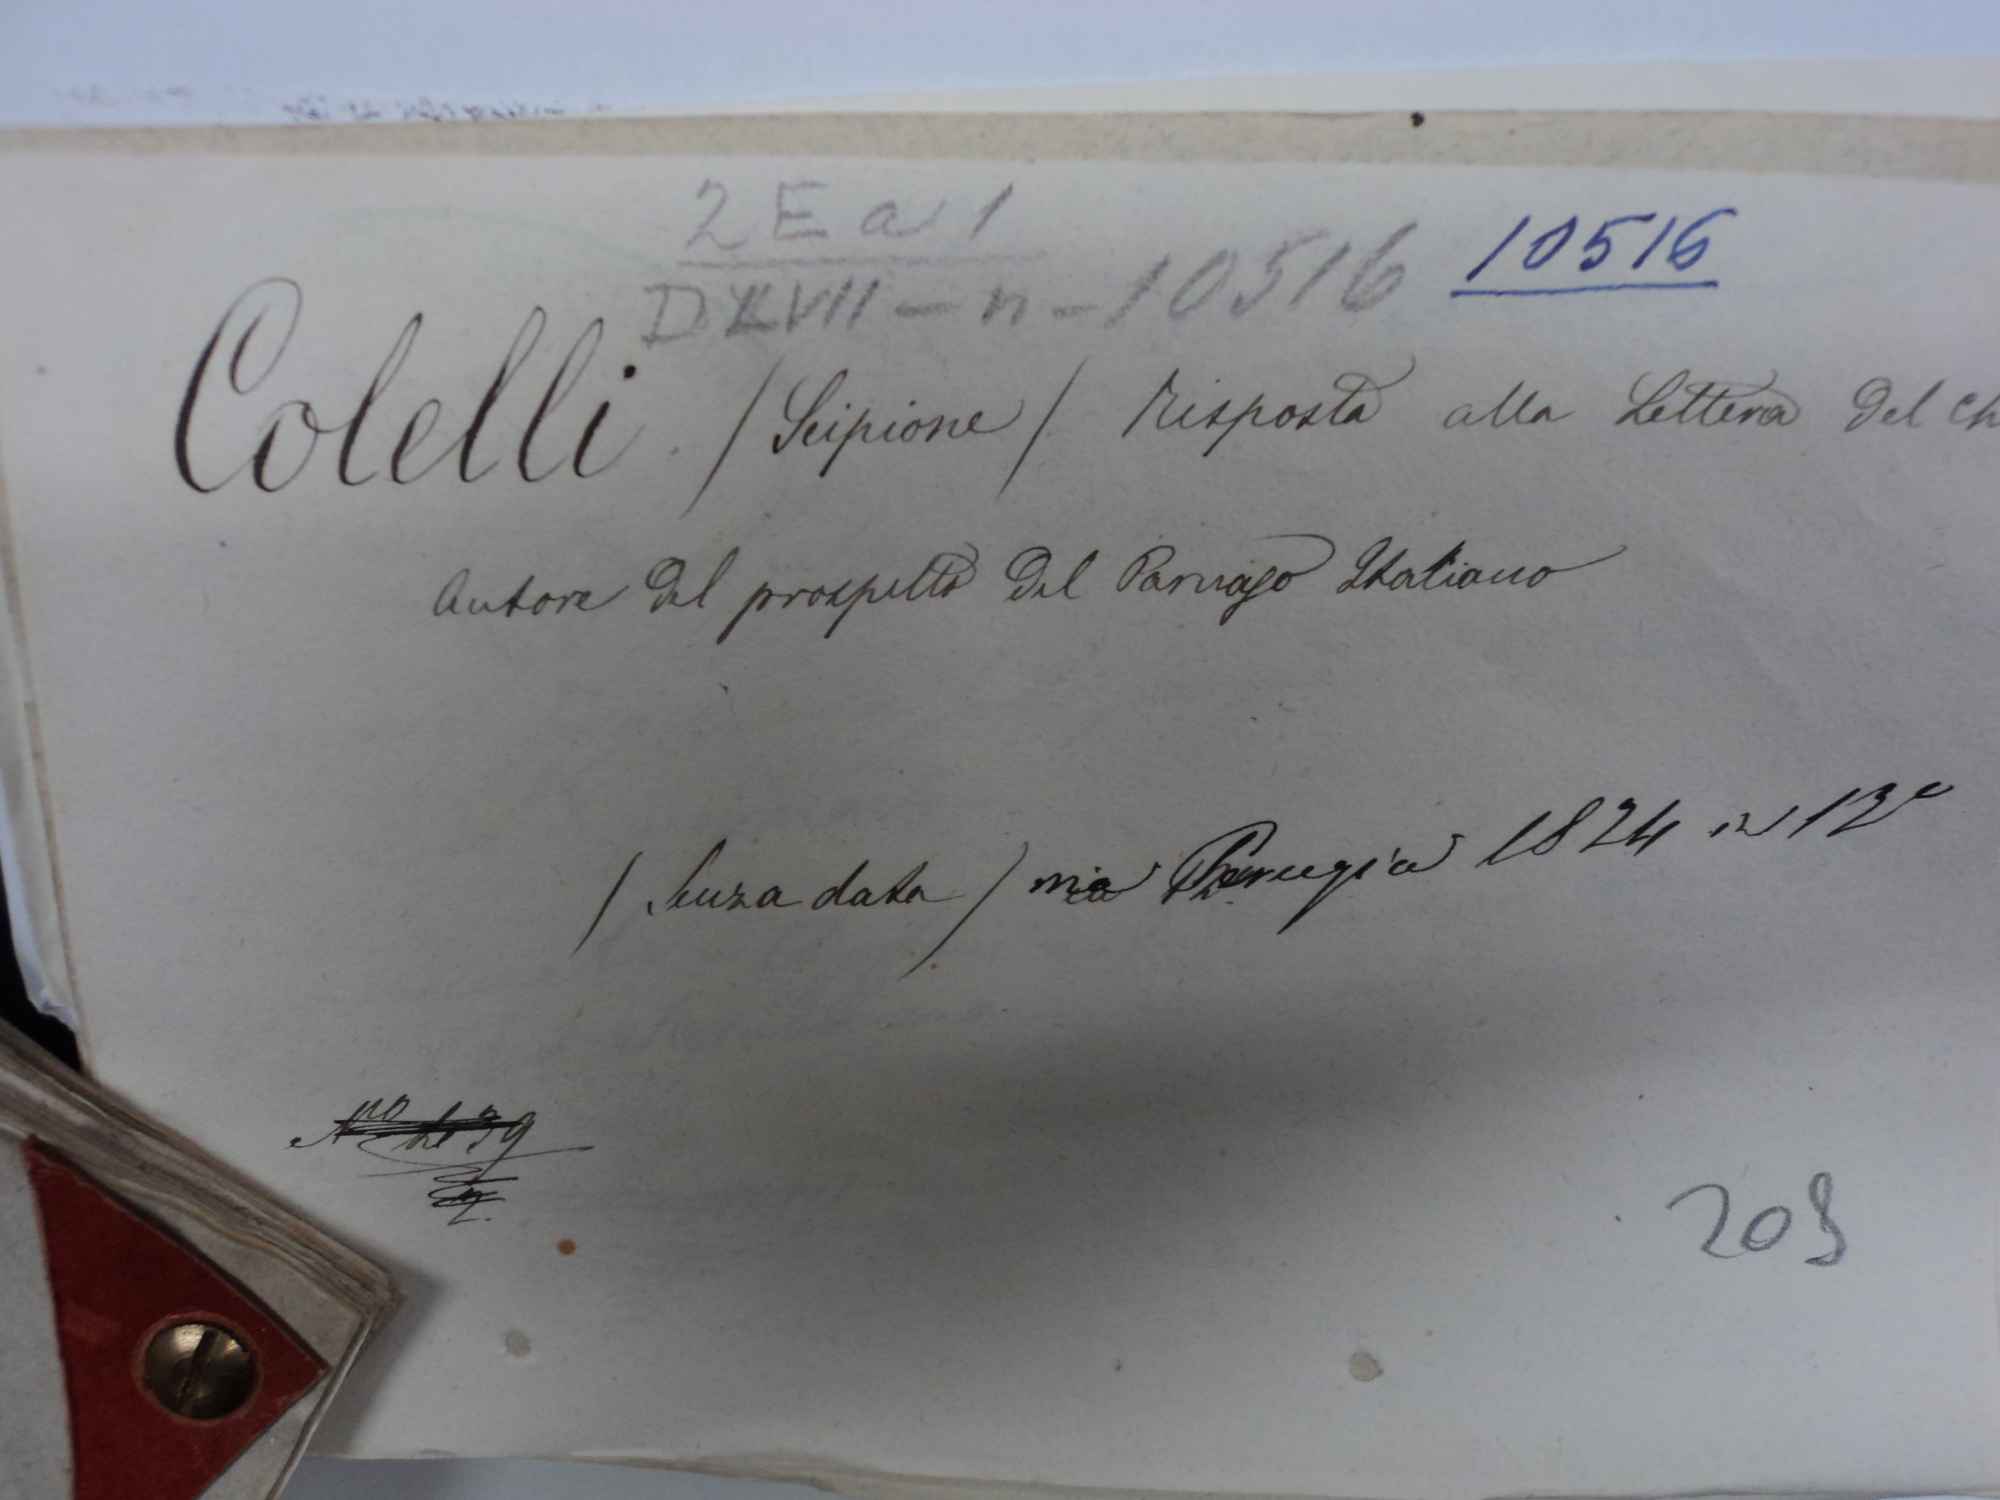 2 E a 1
DXLVII - n - 10516 10516
Colelli. / Scipione / Risposta alla Lettera del Ch
Autore del prospetto del Parnaso Italiano
/ Senza data / ma Perugia 1824 in 12°
208